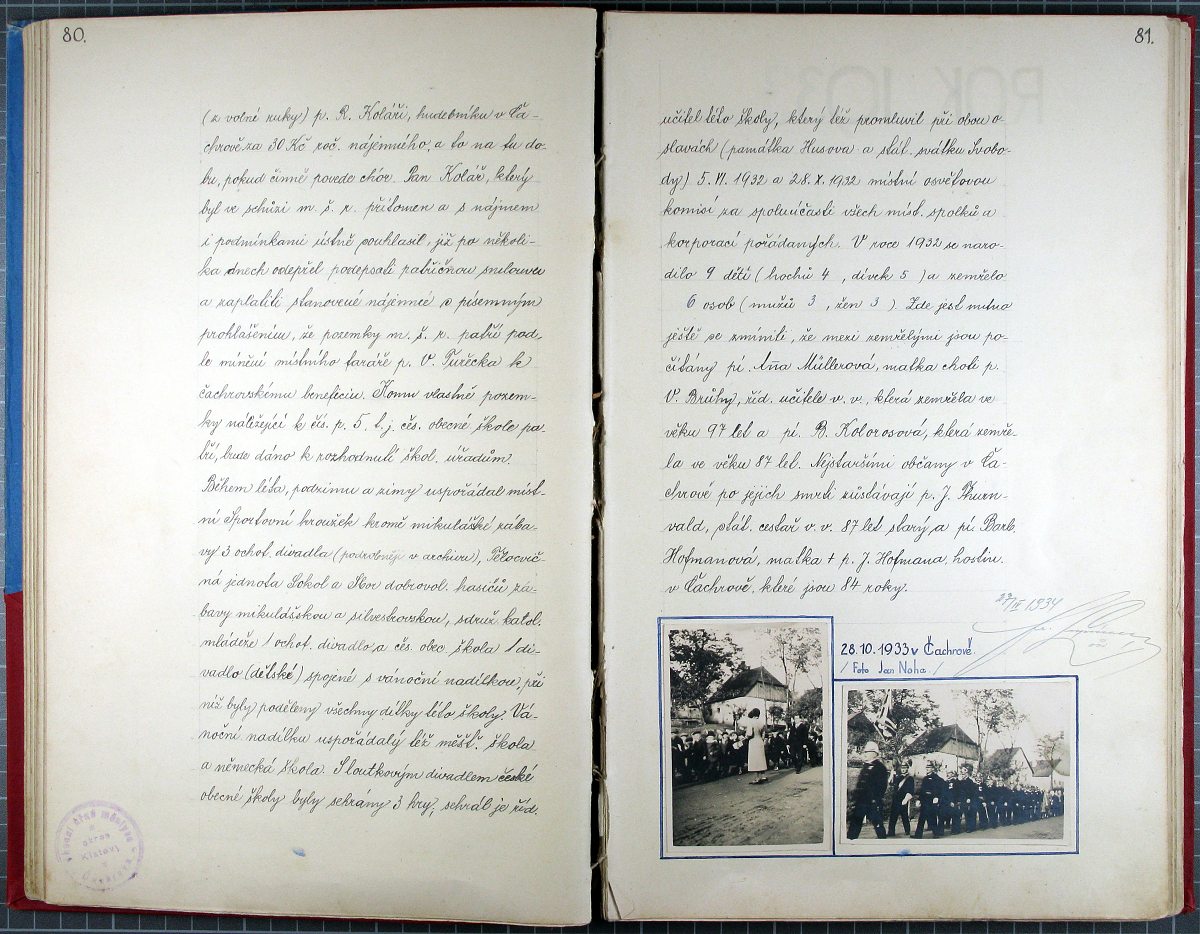 80.
(z volné ruky) p. R. Koláři, hudebníku v Ča-
chrově za 30 Kč roč. nájemného, a to na tu do-
bu, pokud činně povede chór. Pan Kolář, který
byl ve schůzi m. š. r. přítomen a s nájmem
i podmínkami ústně souhlasil, již po několi-
ka dnech odepřel podepsati patřičnou smlouvu
a zaplatiti stanovené nájemné s písemným
prohlášením, že pozemky m. š. r. patří pod-
le mínění místního faráře p. V. Turečka k
čachrovskému beneficiu. Komu vlastně pozem-
ky náležející k čís. p. 5. t. j. čes. obecné škole pa-
tří, bude dáno k rozhodnutí škol. úřadům.
Během léta, podzimu a zimy uspořádal míst-
ní Sportovní kroužek kromě mikulášké zába-
vy 3 ochot. divadla (podrobněji v archivu), Tělocvič-
ná jednota Sokol a Sbor dobrovol. hasičů zá-
bavy mikulášskou a silvestrovskou, sdruž. katol.
mládeže 1 ochot. divadlo, a čes. obec. škola 1 di-
vadlo (dětské) spojené s vánoční nadílkou, při
níž byly poděleny všechny dítky této školy. Vá-
noční nadílku uspořádaly též měšť. škola
a německá škola. S loutkovým divadlem české
obecné školy byly sehrány 3 hry, sehrál je říd.
81.
učitel této školy, který též promluvil při obou o-
slavách (památka Husova a stát. svátku Svobo-
dy) 5. VI. 1932 a 28. X. 1932 místní osvětovou
komisí za spoluúčasti všech míst. spolků a
korporací pořádaných. V roce 1932 se naro-
dilo 9 dětí (hochů 4, dívek 5) a zemřelo
6 osob (mužů 3, žen 3). Zde jest nutno
ještě se zmíniti, že mezi zemřelými jsou po-
čítány pí. Anna Müllerová, matka choti p.
V. Bruhy, říd. učitele v. v., která zemřela ve
věku 97 let a pí. B. Kolorosová, která zemře-
la ve věku 87 let. Nejstaršími občany v Ča-
chrově po jejich smrti zůstávají p. J. Thurn-
vald, stát. cestář v. v. 87 let starý a pí. Barb.
Hofmanová, matka + p. J. Hofmana, hostin.
v Čachrově, které jsou 84 roky.
1934
28.10.1933 v Čachrově.
/ Foto Jan Noha /